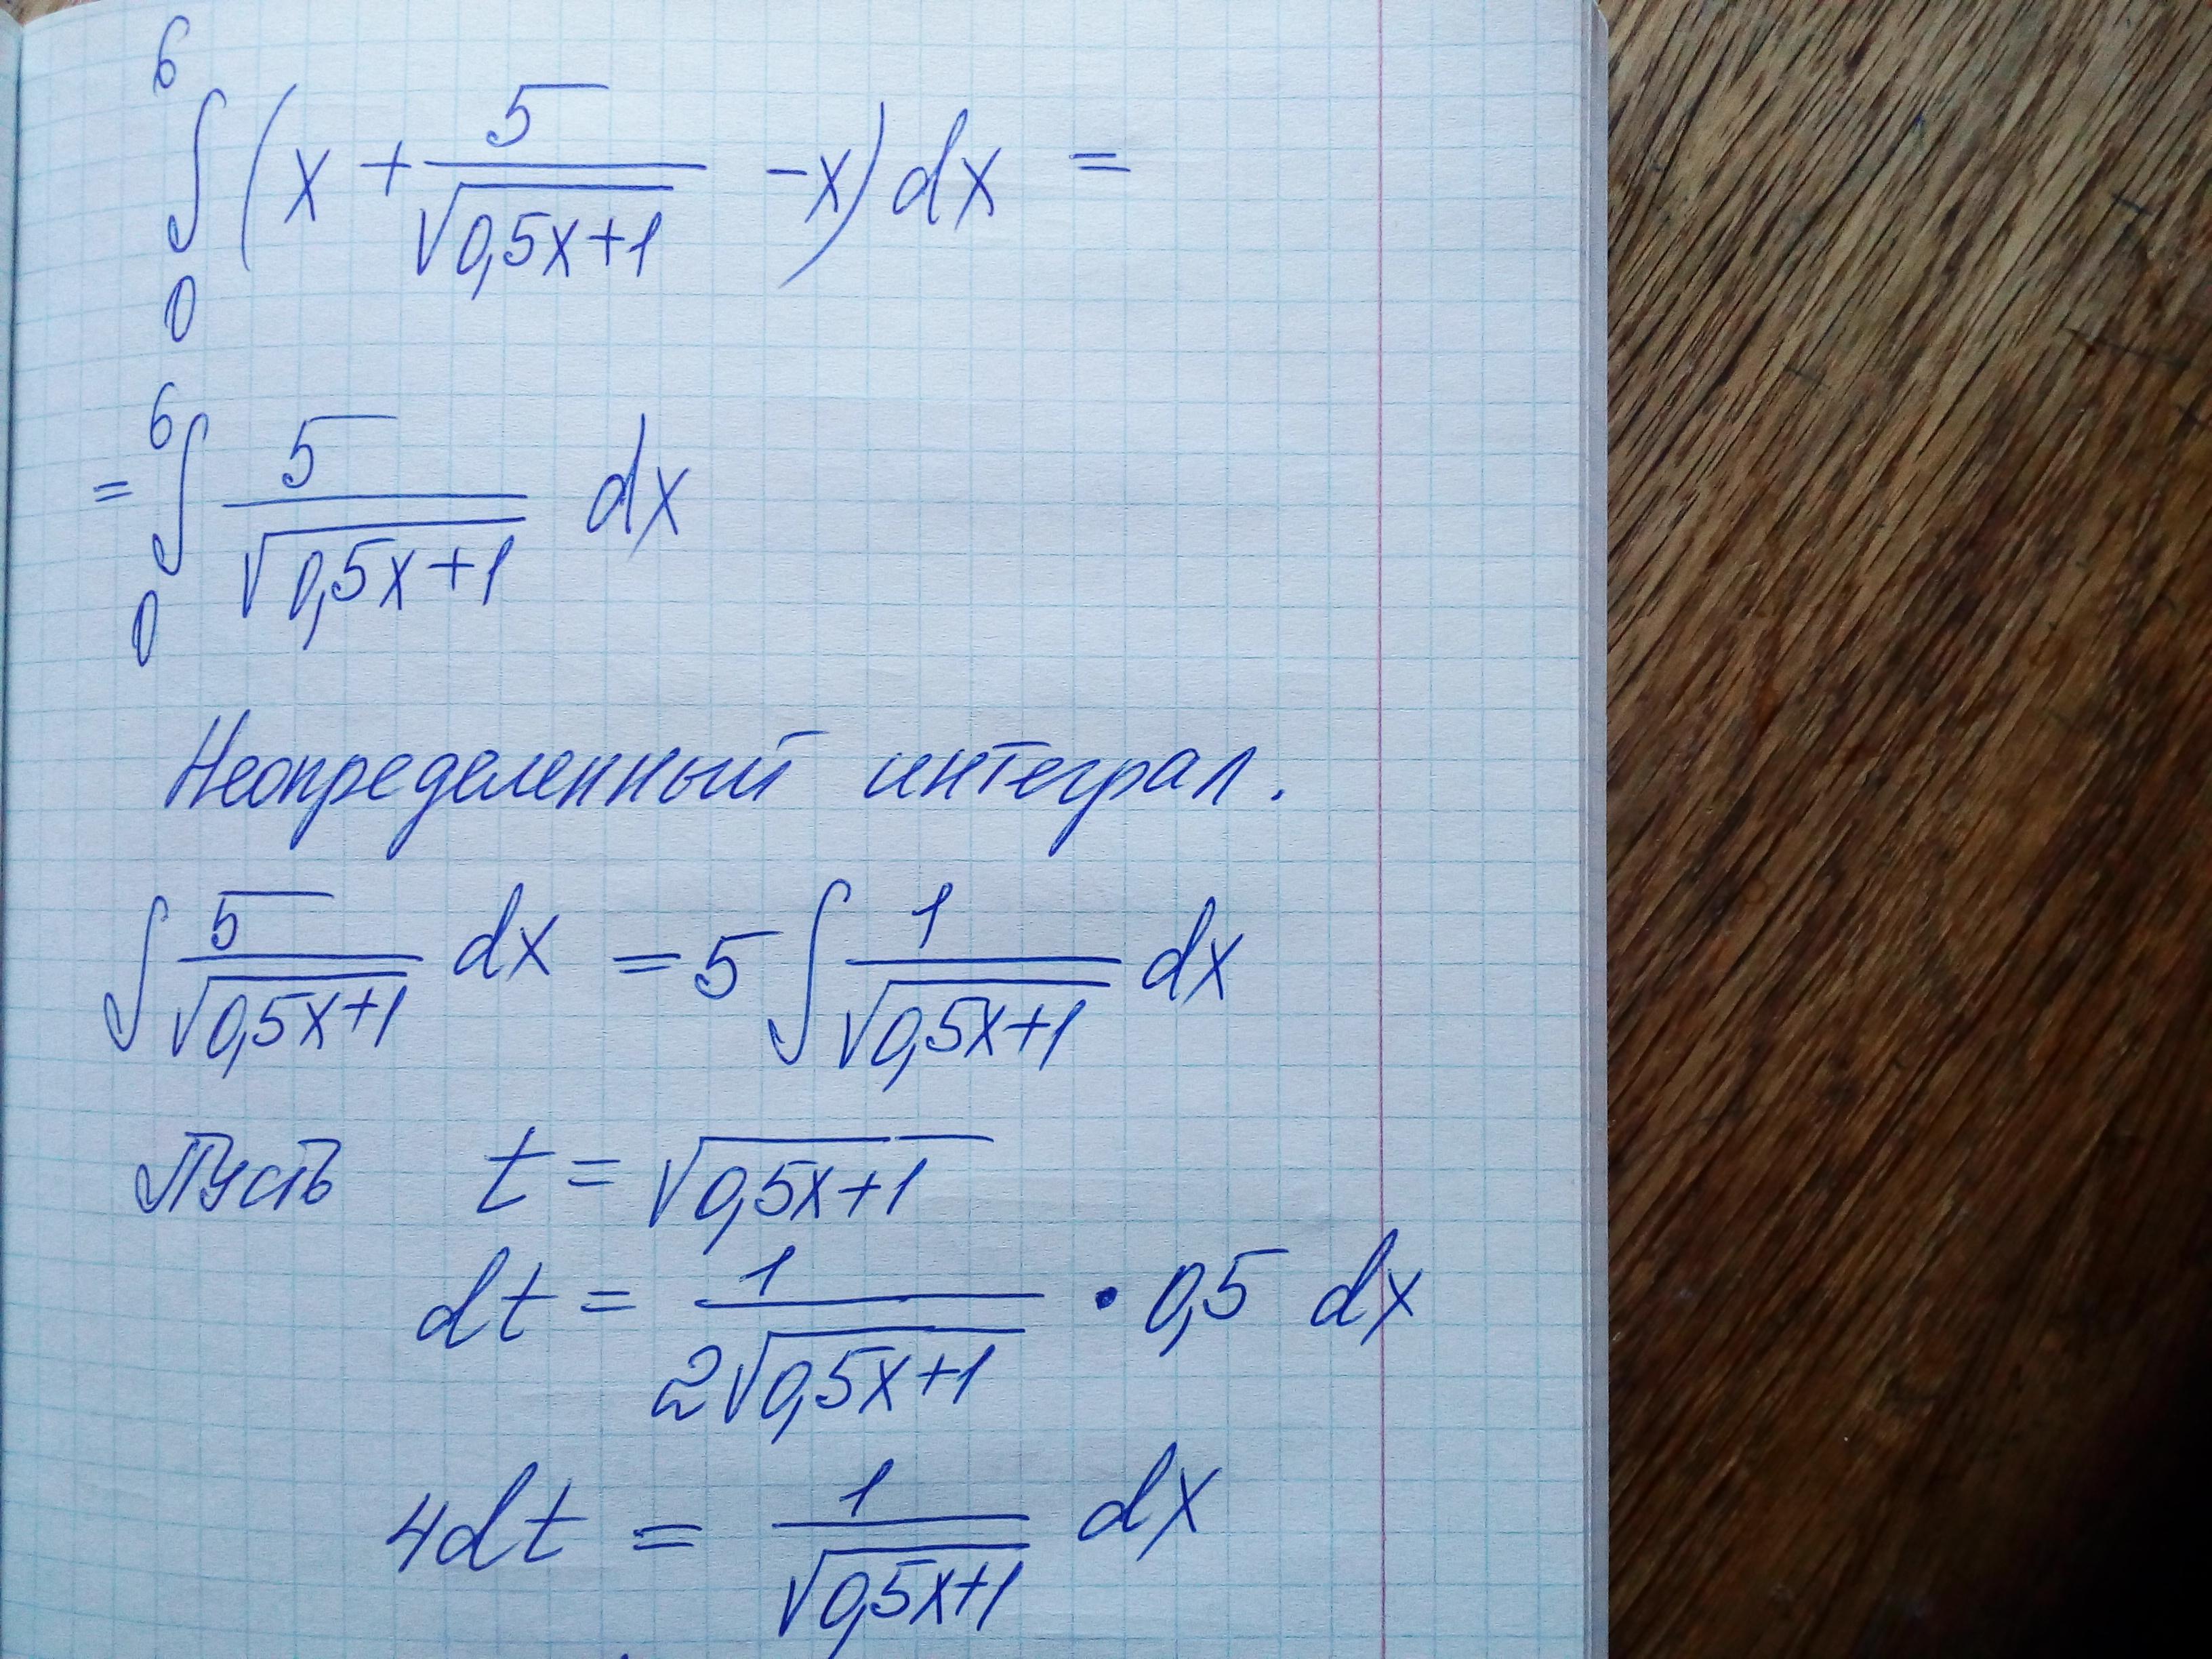 ∫₀⁶ (x + 5/√(0,5x+1) − x) dx =
= ∫₀⁶ 5/√(0,5x+1) dx
Неопределенный интеграл.
∫ 5/√(0,5x+1) dx = 5 ∫ 1/√(0,5x+1) dx
Пусть t = √(0,5x+1)
dt = 1/(2√(0,5x+1)) • 0,5 dx
4dt = 1/√(0,5x+1) dx